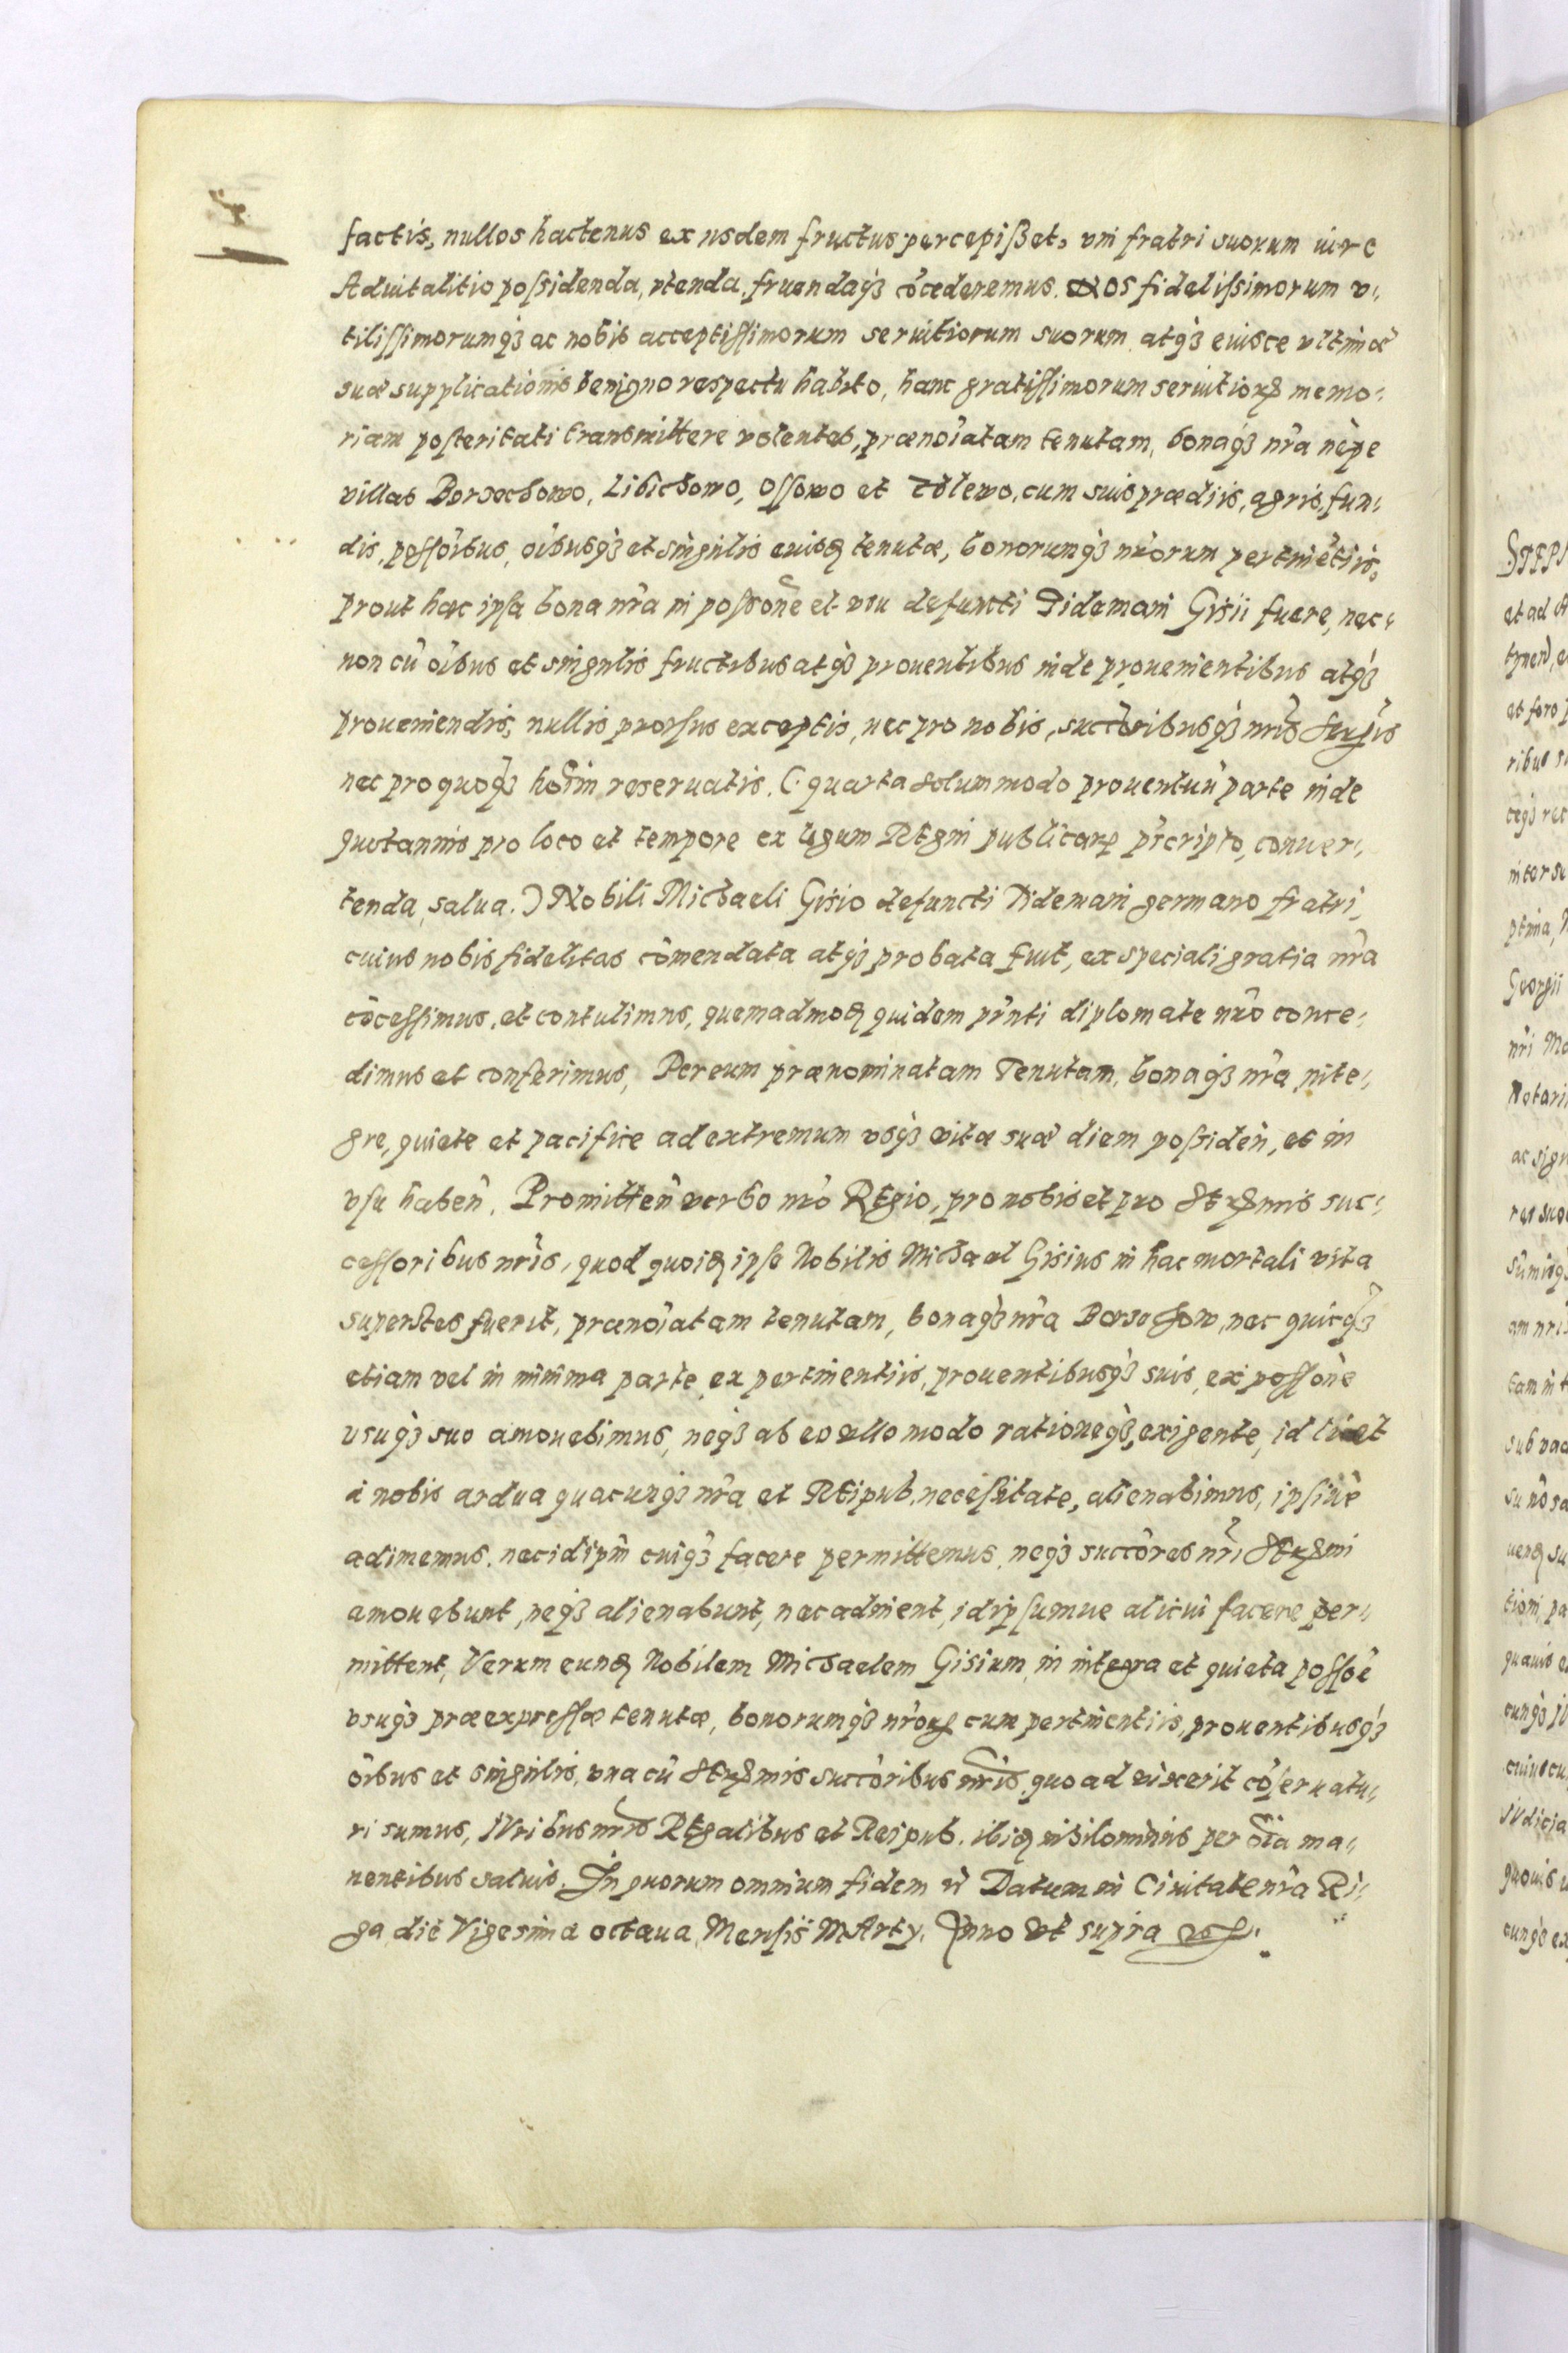 factis, nullos hactenus ex ijsdem fructus percepißet, vni fratri suorum iure
Aduitalitio possidenda, vtenda, fruendaq́ꝫ cõcederemus. Nos fidelissimorum v⸗
tilissimorumq́ꝫ ac nobis acceptissimorum seruitiorum suorum atq́ꝫ eiusce vltimæ
suæ supplicationis benigno respectu habito, hanc gratissimorum seruitioꝝ memo⸗
riam posteritati transmittere volentes, prænoĩatam tenutam, bonaq́ꝫ nr̃a nẽpe
villas Borzechowo, Libichowo, Ossowo et Wolewo, cum suis prædiis, agris, fun⸗
dis, possõibus, oĩbusq́ꝫ et singulis euisꝗ tenutæ, bonorumq́ꝫ nr̃orum pertinẽtiis,
prout hæc ipsa bona nr̃a in possõne et vsu defuncti Tidemani Gisii fuere, nec⸗
non cũ oĩbus et singulis fructibus atq́ꝫ prouentibus inde prouenientibus atq́ꝫ
proueniendis, nullis prorsus exceptis, nec pro nobis, succõribusq́ꝫ nr̃is
nec pro quoq́ꝫ hoĩm reseruatis. (: quarta solummodo prouentuũ parte inde
quotannis pro loco et tempore ex legum Regni publicaꝝ pr̃scripto, conuer⸗
tenda, salua.) Nobili Michaeli Gisio defuncti Tidemani germano fratri,
cuius nobis fidelitas cõmendata atq́ꝫ probata fuit, ex speciali gratia nr̃a
cõcessimus, et contulimus, quemadmoꝗ quidem pr̃nti diplomate nr̃o conce⸗
dimus et conferimus, Per eum prænominatam Tenutam, bonaq́ꝫ nr̃a inte⸗
gre, quiete et pacifice ad extremum vsq́ꝫ vitæ suæ diem possideñ, et in
vsu habeñ. Promitteñ verbo nr̃o Regio, pro nobis et pro Serꝝmis suc⸗
cessoribus nr̃is, quod quoiꝗ ipse Nobilis Michael Gisius in hac mortali vita
superstes fuerit, prænoĩatam tenutam, bonaq́ꝫ nr̃a Borzechow, nec quicq́ꝫ
etiam vel in minima parte ex pertinentiis, prouentibusq́ꝫ suis, ex possõne
vsuq́ꝫ suo amouebimus, neq́ꝫ ab eo vllo modo rationeq́ꝫ, exigente, id licet
a nobis ardua quacunq́ꝫ nr̃a et Reipub. necessitate, alienabimus, ipsiue
adimemus. nec idip̃m cuiq́ꝫ facere permittemus, neq́ꝫ succõres nr̃i Serꝝmi
amouebunt, neq́ꝫ alienabunt, nec adiment, idipsumue alicui facere per⸗
mittent, Verum eunꝗ Nobilem Michaelem Gisium, in integra et quieta possõe
vsuq́ꝫ præexpressæ tenutæ, bonorumq́ꝫ nr̃oꝝ cum pertinentiis, prouentibusq́ꝫ
oĩbus et singulis, vna cũ Serꝝmis succõribus nr̃is quoad vixerit cõseruatu⸗
ri sumus, Iuribus nr̃is Regalibus et Reipub. ibiꝗ nihilominus per oĩa ma⸗
nentibus saluis. In quorum omnium fidem r̃ Datum in Ciuitate nr̃a Ri⸗
ga die Vigesima octaua Mensis Marty. Anno vt supra